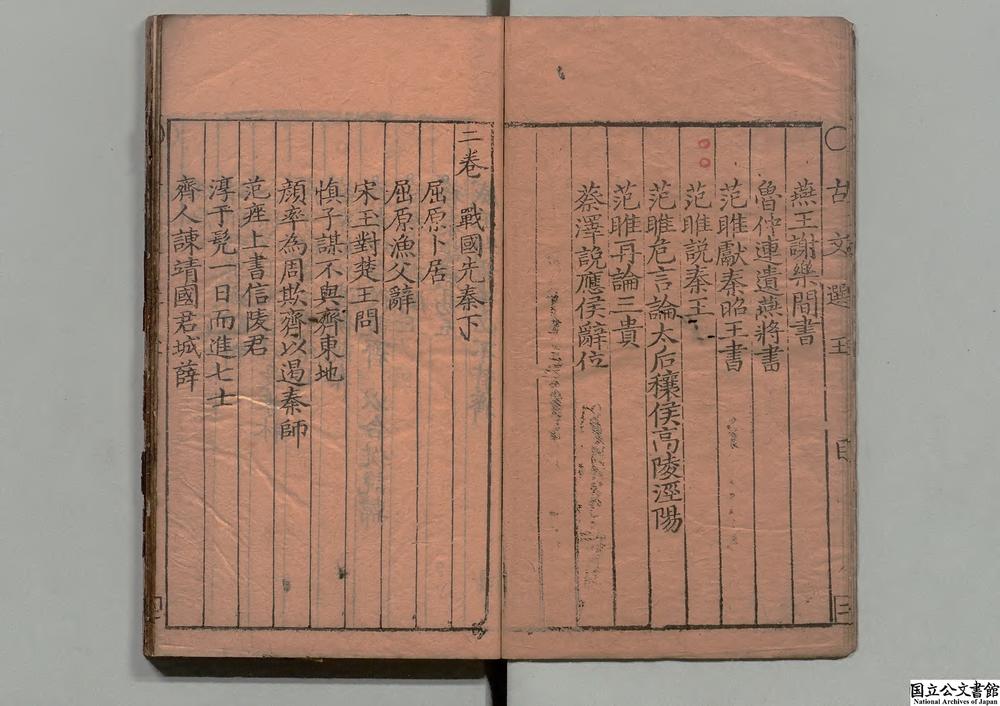 古文選玉 目
燕王謝樂間書
魯仲連遺燕將書
范睢獻秦昭王書
范睢說秦王
范睢危言論太后穰侯高陵涇陽
范睢再論三貴
蔡澤說應侯辭位
二卷 戰國先秦下
屈原卜居
屈原漁父辭
宋玉對楚王問
慎子謀不與齊東地
顏率為周欺齊以遏秦師
范痤上書信陵君
淳于髡一日而進七士
齊人諫靖國君城薛
国立公文書館
National Archives of Japan